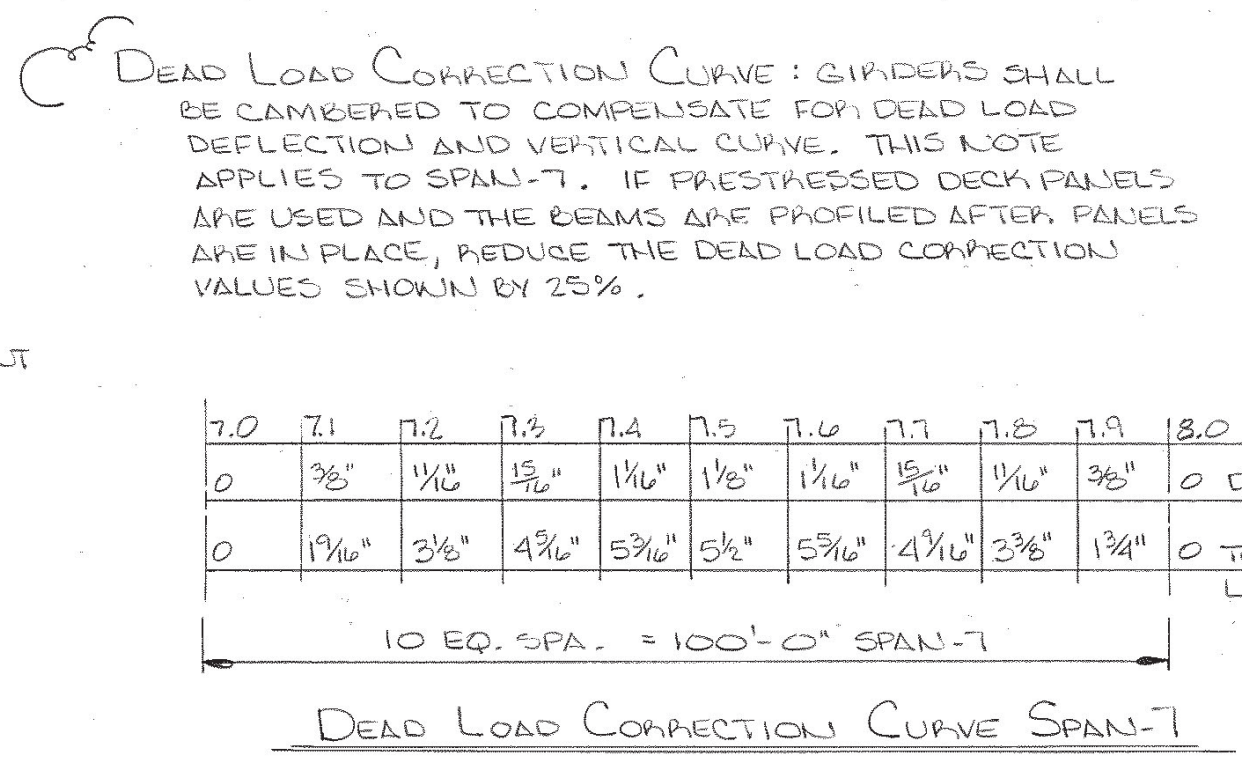 DEAD LOAD CORRECTION CURVE : GIRDERS SHALL
BE CAMBERED TO COMPENSATE FOR DEAD LOAD
DEFLECTION AND VERTICAL CURVE. THIS NOTE
APPLIES TO SPAN-7. IF PRESTRESSED DECK PANELS
ARE USED AND THE BEAMS ARE PROFILED AFTER PANELS
ARE IN PLACE, REDUCE THE DEAD LOAD CORRECTION
VALUES SHOWN BY 25%.
7.0 7.1 7.2 7.3 7.4 7.5 7.6 7.7 7.8 7.9 8.0
0 3/8" 11/16" 15/16" 1 1/16" 1 1/8" 1 1/16" 15/16" 11/16" 3/8" 0
0 1 9/16" 3 1/8" 4 5/16" 5 3/16" 5 1/2" 5 5/16" 4 9/16" 3 3/8" 1 3/4" 0
10 EQ. SPA. = 100'-0" SPAN-7
DEAD LOAD CORRECTION CURVE SPAN-7